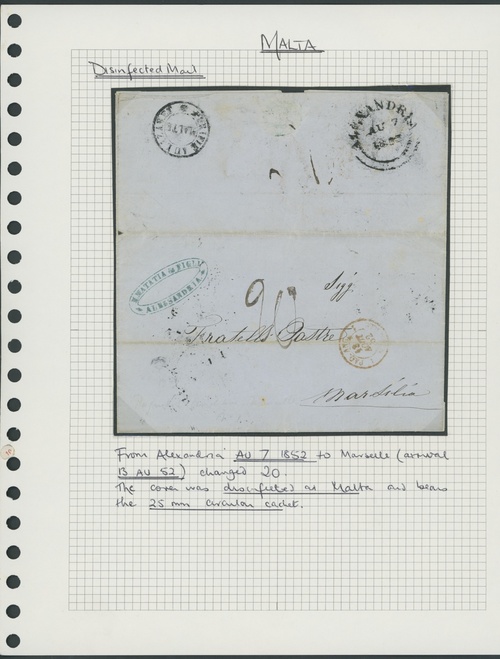 MALTA
Disinfected Mail
ALEXANDRIA
AU 7
PURIFIE AU LAZARET
MALTE
ALESSANDRIA
20
Sigg
Fratelli Pastre
Marsilia
From Alexandria AU 7 1852 to Marseille (arrival
13 AU 52) charged 20.
The cover was disinfected at Malta and bears
the 25 mm circular cachet.